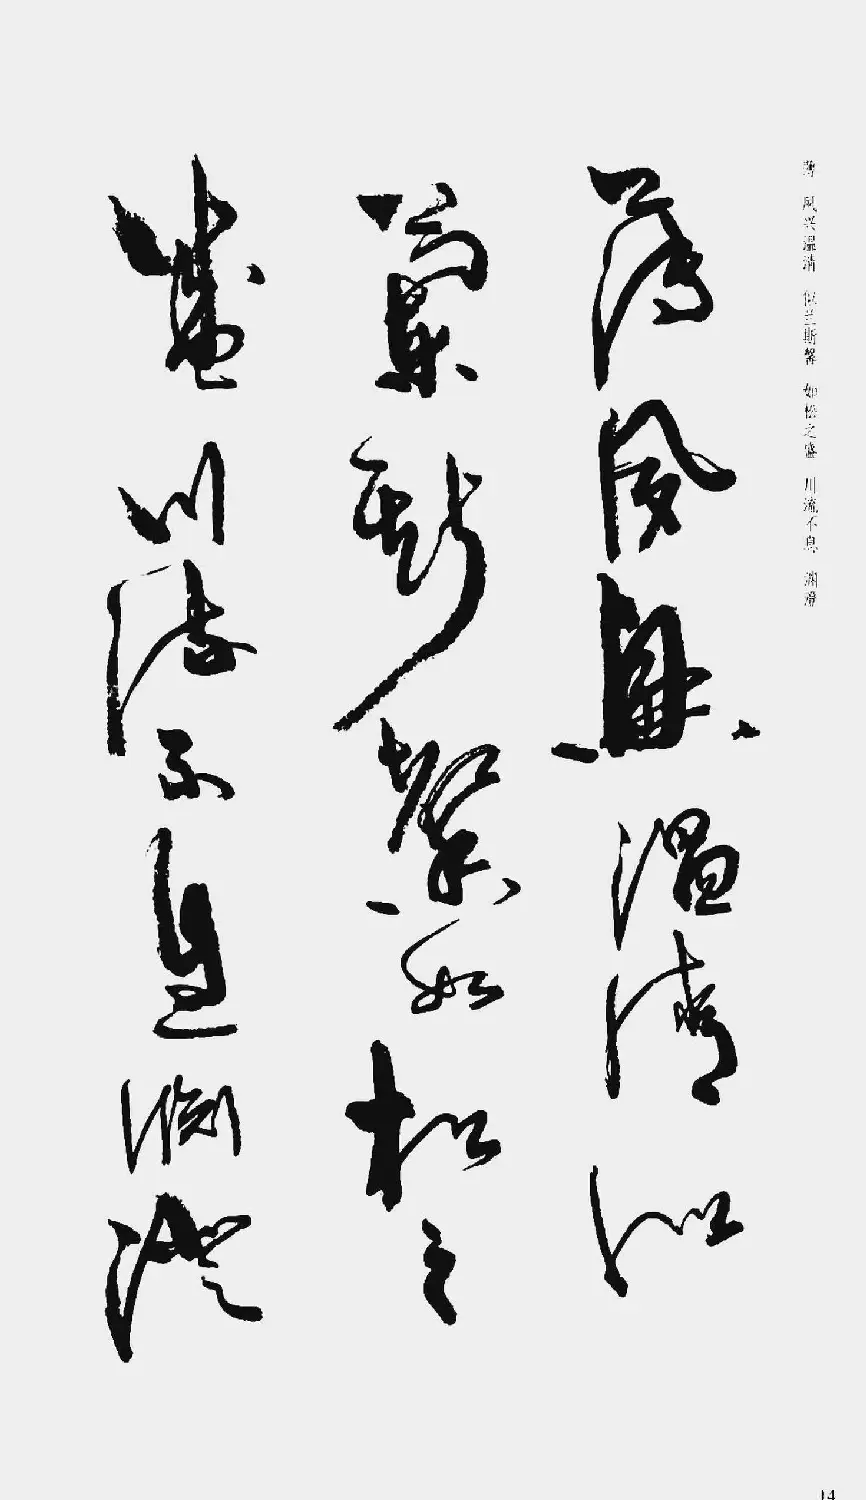 薄 夙兴温凊 似兰斯馨 如松之盛 川流不息 渊澄
薄夙興温凊似
蘭斯馨如松之
盛川流不息淵澄
14